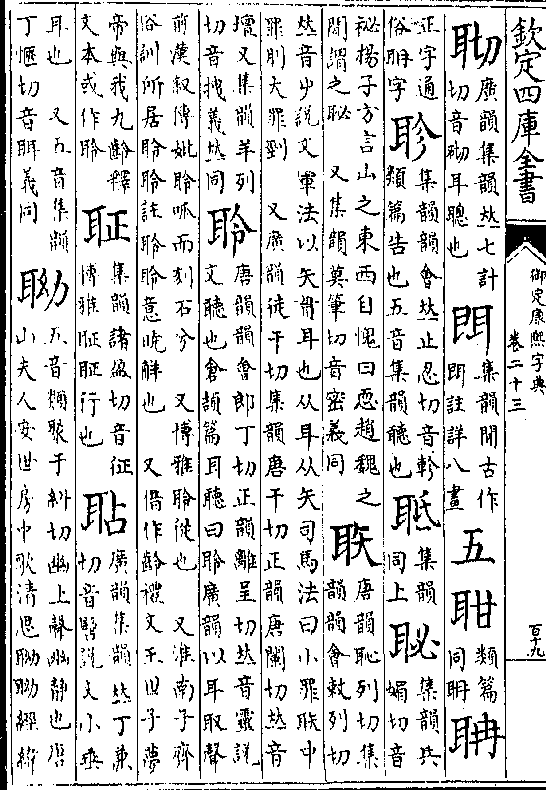 欽定四庫全書
御定康熙字典
卷二十三
百九
𦔿廣韻集韻𠀤七計
切音砌耳聰也
䎳集韻聞古作
䎳註詳八畫
五
聃類篇
同聃
聃
正字通
俗聃字
聄集韻韻會𠀤止忍切音軫
類篇告也五音集韻聽也
聜集韻
同上
䎵集韻兵
媚切音
祕揚子方言山之東西自愧曰恧趙魏之
間謂之䎵 又集韻莫筆切音密義同
聅唐韻恥列切集
韻韻會敕列切
𠀤音屮說文軍法以矢貫耳也从耳从矢司馬法曰小罪聅中
罪刖大罪剄 又廣韻徒干切集韻唐干切正韻唐闌切𠀤音
壇又集韻羊列
切音拽義𠀤同
聆唐韻韻會郎丁切正韻離呈切𠀤音靈說
文聽也倉頡篇耳聽曰聆廣韻以耳取聲
前漢叙傳妣聆呱而刻石兮 又博雅聆從也 又淮南子齊
俗訓所居聆聆註聆聆意曉解也 又借作齡禮文王世子夢
帝與我九齡釋
文本或作聆
聇集韻諸盈切音征
博雅聇聇行也
聑廣韻集韻𠀤丁兼
切音髻說文小垂
耳也 又五音集韻
丁愜切音聑義同
聈五音類聚于糾切幽上聲幽靜也唐
山夫人安世房中歌清思聈聈經緯